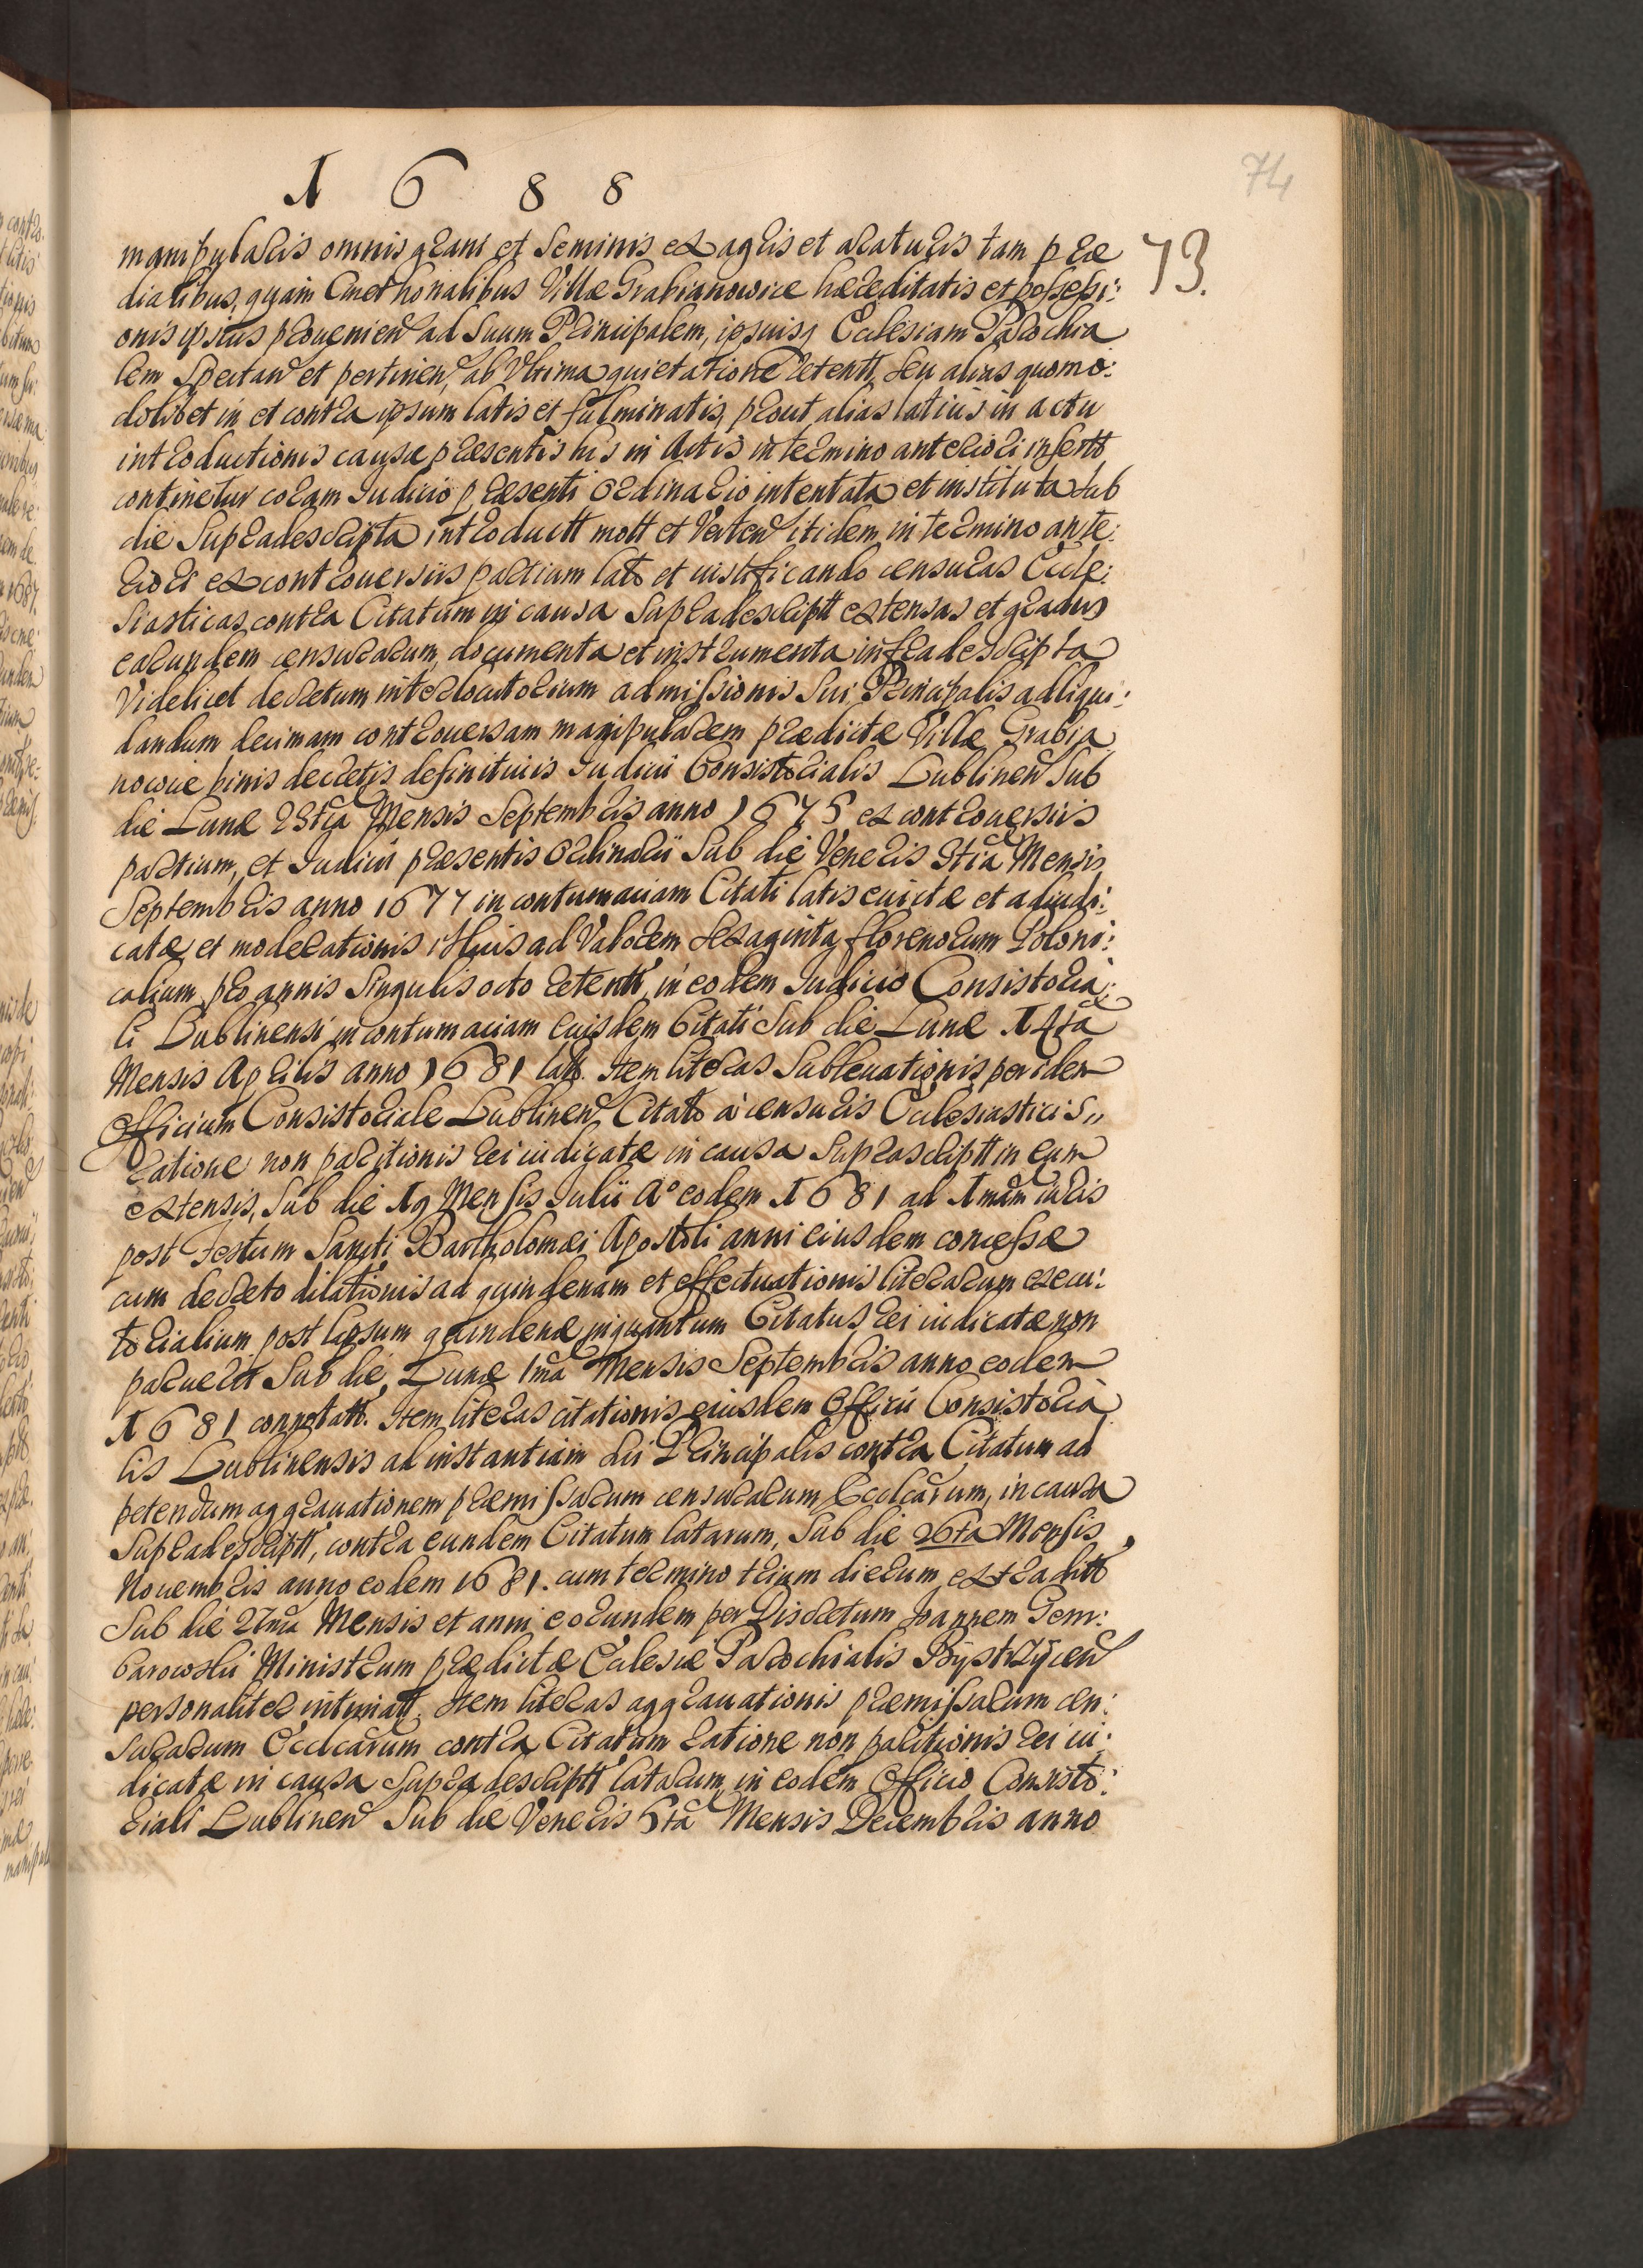 74
1688
73.
manipularis omnis grani et seminis ex agris et araturis tam præ
dialibus, quam Cmethonalibus Villæ Grabianowice hæreditatis et possessi:
onis ipsius prouenien ad suum Principalem, ipsuisq Ecclesiam Parochia
lem spectan et pertinen, ab Vltima quietatione retentt, seu alias quomo:
dolibet in et contra ipsum latis et fulminatis, prout alias latius in actu
introductionis causæ præsentis his in Actis in termino anteriori insertt
continetur coram Iudicio præsenti Ordinario intentata et instituta sub
die Supradescripta introductt mott et Verten itidem in termino ante:
riori ex controuersiis partium lato et iustificando censuras Eccle:
siasticas contra Citatum in causa supradescriptt extensas et gradus
earundem censurarum, documenta et instrumenta infradescripta
Videlicet decretum interlocutorium admissionis sui Principalis ad liqui:
dandum decimam controuersam manipularem prædictæ Villæ Grabia
nowice binis decretis definitiuis Iudicii Consistorialis Lublinen sub
die Lunæ 23tia Mensis Septembris anno 1675 ex controuersiis
partium, et Iudicii præsentis Ordinarii Sub die Veneris 3tia Mensis
Septembris anno 1677 in contumaciam Citati latis euictæ et adiudi:
catæ et moderationis illius ad Valorem sexaginta florenorum Poloni:
calium pro annis singulis octo retentt, in eodem Iudicio Consistoria:
li Lublinensi in contumaciam eiusdem Citati Sub die Lunæ 14ta
Mensis Aprilis anno 1681 latt. Item literas subleuationis per idem
Officium Consistoriale Lublinen Citato à censuris Ecclesiasticis,,
ratione non paritionis rei iudicatæ in causa suprascriptt in eum
extensis, sub die 19 Mensis Iulii Aº eodem 1681 ad 1mam iuris
post Festum Sancti Bartholomæi Apostoli anni eiusdem concessæ
cum decreto dilationis ad quindenam et effectuationis literarum execu:
torialium post lapsum quindenæ inquantum Citatus rei iudicatæ non
paruerit Sub die Lunæ 1ma Mensis Septembris anno eodem
1681 connotatt. Item literas citationis eiusdem Officii Consistoria
lis Lublinensis ad instantiam sui Principalis contra Citatum ad
petendum aggrauationem præmissarum censurarum Ecclcarum, in causa
supradescriptt, contra eundem Citatum latarum, sub die 26ta Mensis
Nouembris anno eodem 1681. cum termino trium dierum extraditt
sub die 27ma Mensis et anni eorundem per Discretum Joannem Gem:
barowski Ministrum prædictæ Ecclesiæ Parochialis Bystrzycen
personaliter intimatt. Item literas aggrauationis præmissarum cen:
surarum Ecclcarum contra Citatum ratione non paritionis rei iu:
dicatæ in causa supradescriptt latarum, in eodem Officio Consisto:
riali Lublinen sub die Veneris 5ta Mensis Decembris anno